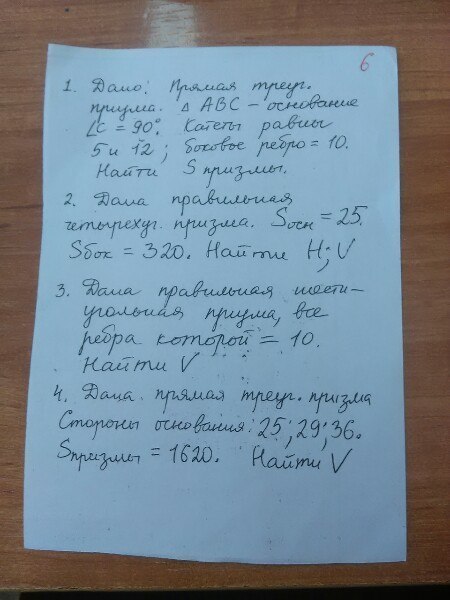 6
1. Дано: Прямая треуг.
призма. △ ABC – основание
∠C = 90°. Катеты равны
5 и 12; боковое ребро = 10.
Найти S призмы.
2. Дана правильная
четырехуг. призма. Sосн = 25.
Sбок = 320. Найти H; V
3. Дана правильная шести-
угольная призма, все
ребра которой = 10.
Найти V
4. Дана прямая треуг. призма
Стороны основания: 25; 29; 36.
Sпризмы = 1620. Найти V